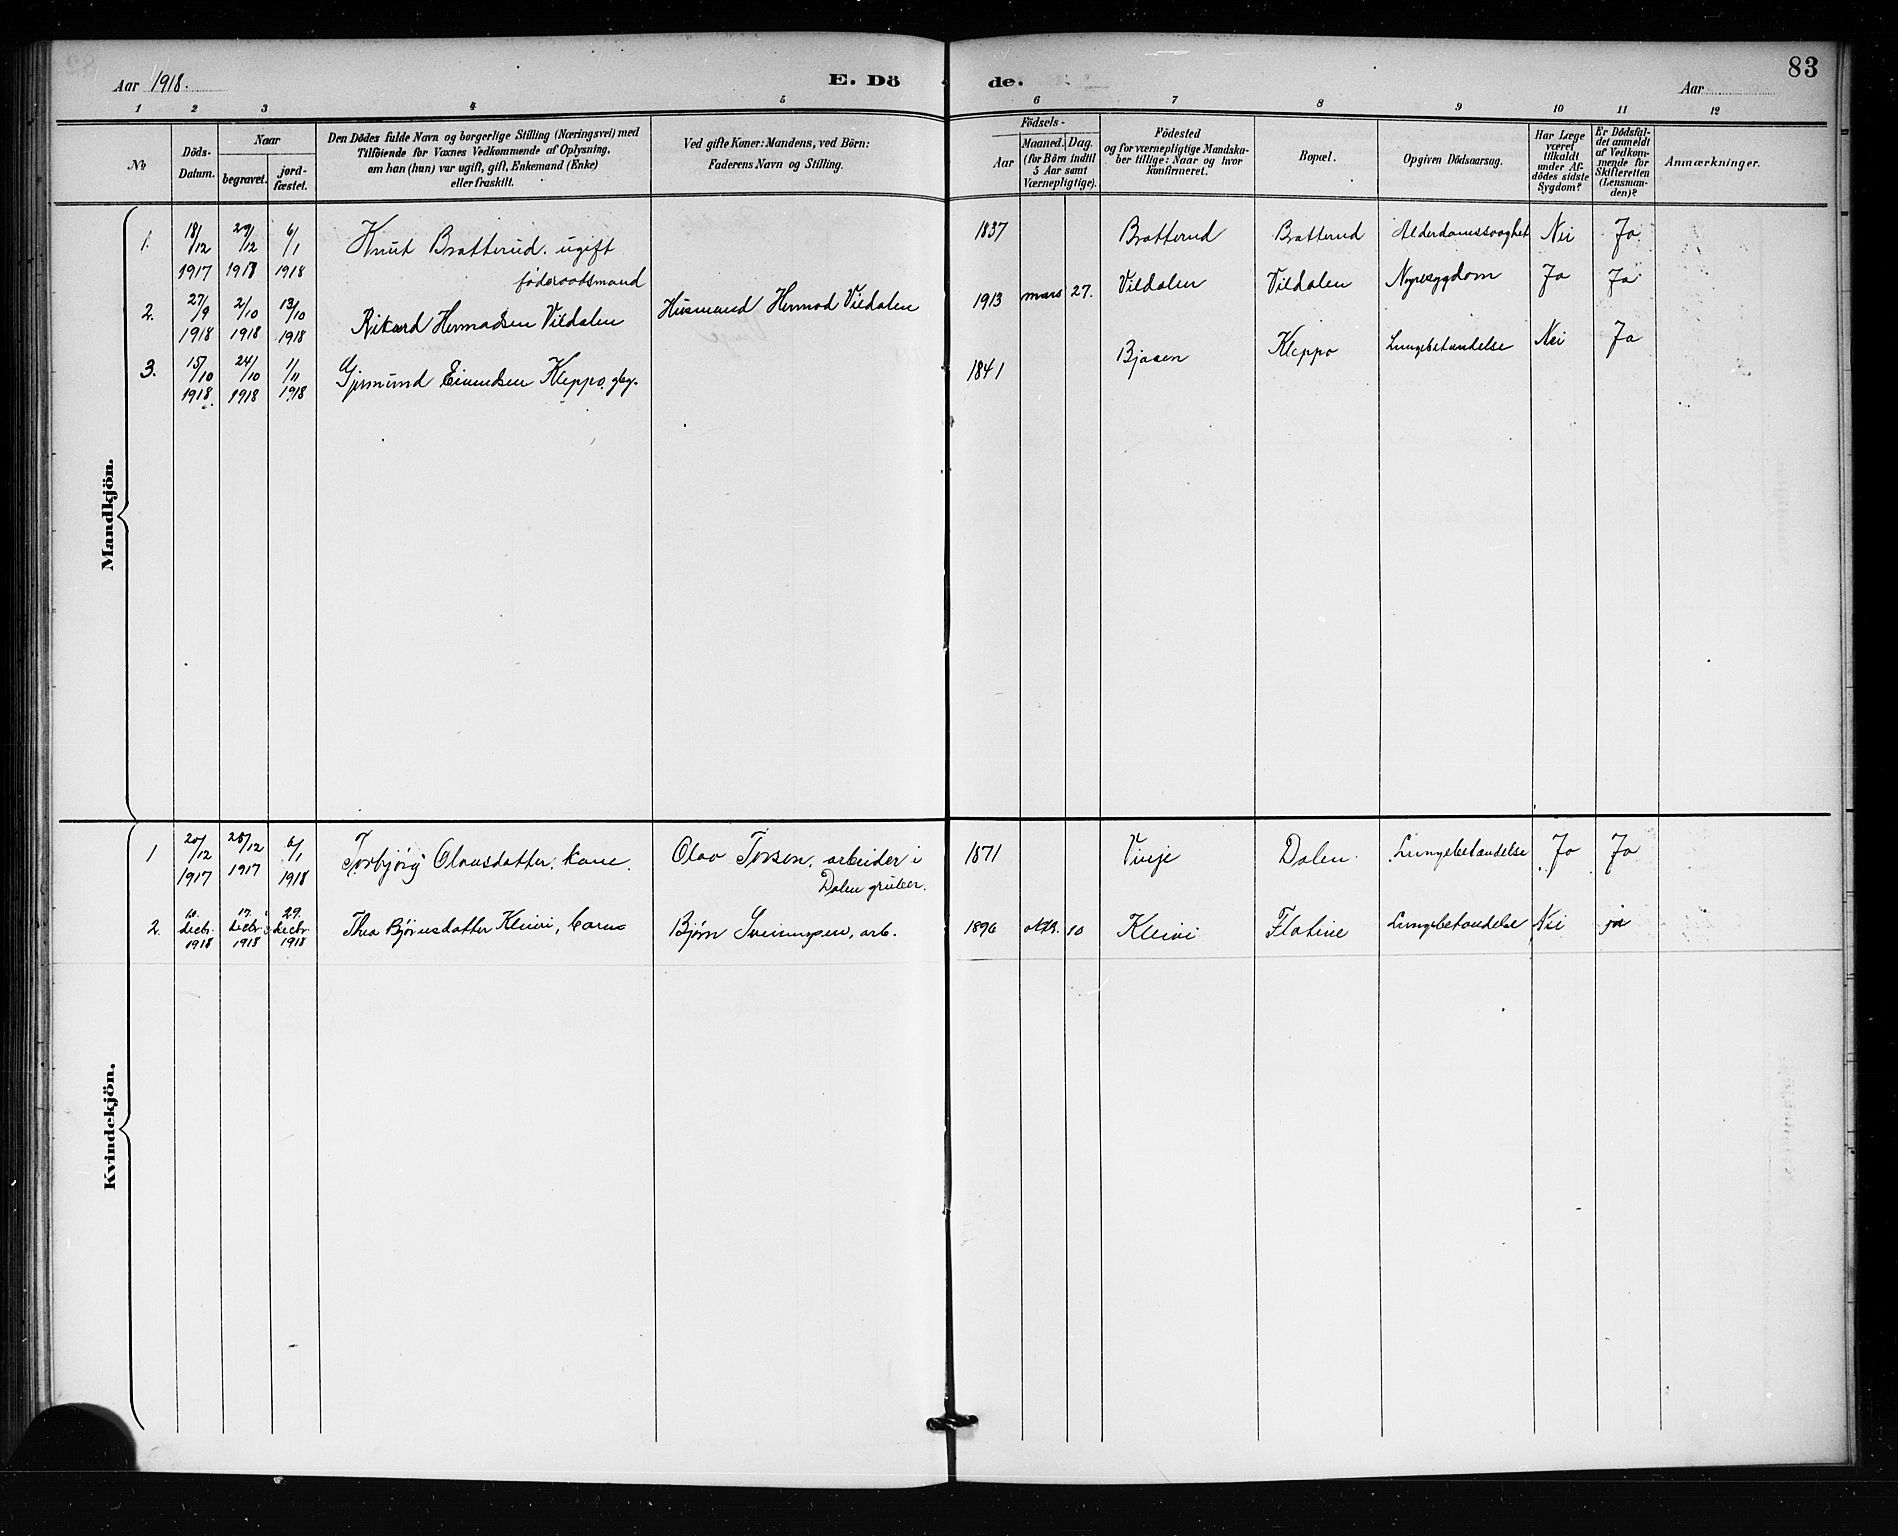 Aar 1918.
E. Dö de.
Aar
83
1 2 3 4 5 6 7 8 9 10 11 12
No
Döds-Datum.
Naar
begravet.
jord-fæstet.
Den Dödes fulde Navn og borgerlige Stilling (Næringsvei) med
Tilföiende for Voxnes Vedkommende af Oplysning,
om han (hun) var ugift, gift, Enkemand (Enke)
eller fraskilt.
Ved gifte Koner: Mandens, ved Börn:
Faderens Navn og Stilling.
Födsels-
Aar
Maaned.
Dag.
(for Börn indtil
5 Aar samt
Værnepligtige).
Födested
og for værnepligtige Mandska-
ber tillige: Naar og hvor
konfirmeret.
Bopæl.
Opgiven Dödsaarsag.
Har Læge
været
tilkaldt
under Af-
dödes sidste
Sygdom?
Er Dödsfal-
det anmeldt
af Vedkom-
mende for
Skifteretten
(Lensman-
den)?
Anmærkninger.
Mandkjön.
1. 18/12 1917 29/12 1918 6/1 1918 Knut Bratterud. ugift føderaadsmand 1837 Bratterud Bratterud Alderdomssvaghet Nei Ja.
2. 27/9 1918 2/10 1918 13/10 1918 Rikard Hermodsen Vildalen Husmand Hermod Vildalen 1913 mars 27. Vildalen Vildalen Nyresygdom Ja Ja
3. 15/10 1918. 24/10 1918 1/11 1918 Gjermund Eivindsen Kleppo, gbr. 1841 Bjaaen Kleppo Lungebetændelse Nei Ja
Kvindekjön.
1 20/12 1917 28/12 1917 6/1 1918 Torbjørg Olavsdatter, kone. Olav Torsen, arbeider i Dalen gruber. 1871 Vinje Dalen Lungebetændelse Ja Ja
2. 10. decbr. 1918 17. decbr. 1918 29. decbr. 1918 Thea Bjørnsdatter Kleivi, Bjørn Sveinungsen, arb. 1896 oktr. 10 Kleivi Flatine Lungebetændelse Nei ja